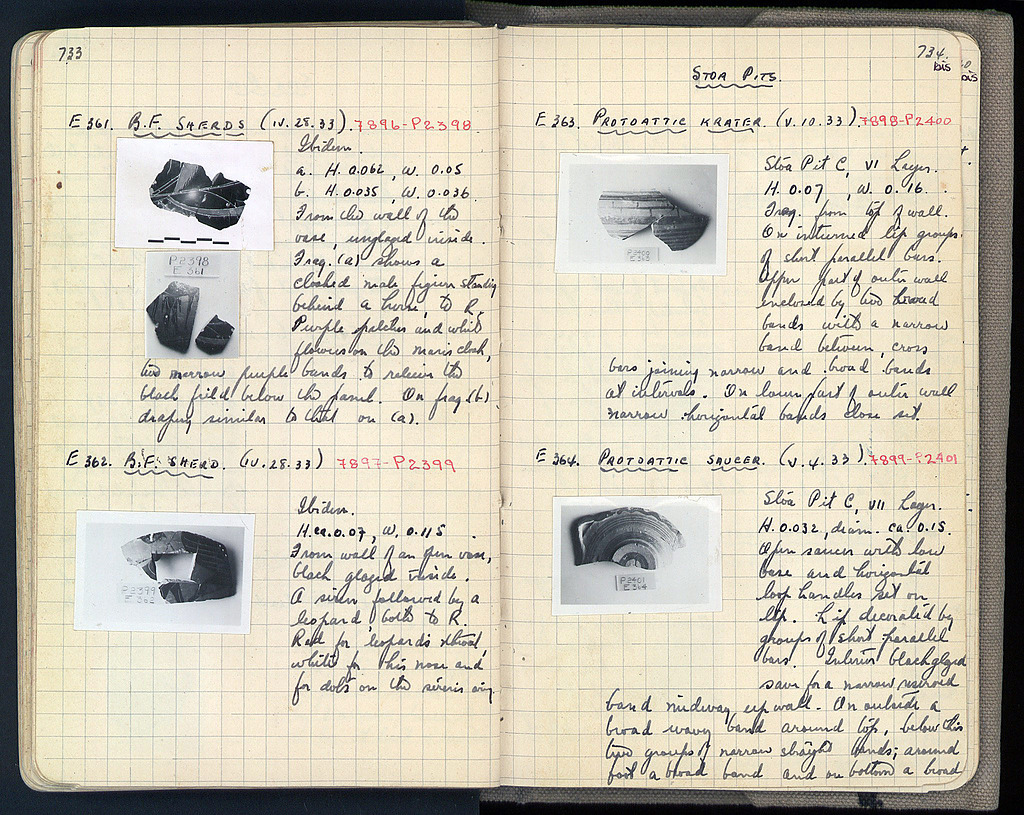 733
E 361. B.F. SHERDS (IV.28.33). 7896-P2398
Ibidem.
a. H. 0.062, W. 0.05
b. H. 0.035, W. 0.036
From the wall of the
vase, unglazed inside.
Frag. (a) shows a
cloaked male figure standing
behind a horse, to R.
Purple patches and white
flowers on the man's cloak,
two narrow purple bands to relieve the
black field below the panel. On frag (b)
drapery similar to that on (a).
P2398
E 361
E 362. B.F. SHERD. (IV.28.33) 7897-P2399
Ibidem.
H. ca. 0.07, W. 0.115
From wall of an open vase,
black glazed inside.
A siren followed by a
leopard, both to R.
Red for leopard's throat,
white for his nose and
for dots on the siren's wing.
P2399
E 362
734
bis
STOA PITS.
E 363. PROTOATTIC KRATER. (V.10.33). 7898-P2400
Stoa Pit C, VI Layer.
H. 0.07, W. 0.16.
Frag. from top of wall.
On inturned lip groups
of short parallel bars.
Upper part of outer wall
enclosed by two broad
bands with a narrow
band between, cross
bars joining narrow and broad bands
at intervals. On lower part of outer wall
narrow horizontal bands close set.
P2400
E 363
E 364. PROTOATTIC SAUCER. (V.4.33). 7899-P2401
Stoa Pit C, VII Layer.
H. 0.032, diam. ca. 0.15.
Open saucer with low
base and horizontal
loop handles set on
lip. Lip decorated by
groups of short parallel
bars. Interior black glazed
save for a narrow reserved
band midway up wall. On outside a
broad wavy band around top, below this
two groups of narrow straight bands; around
foot a broad band and on bottom a broad
P2401
E 364